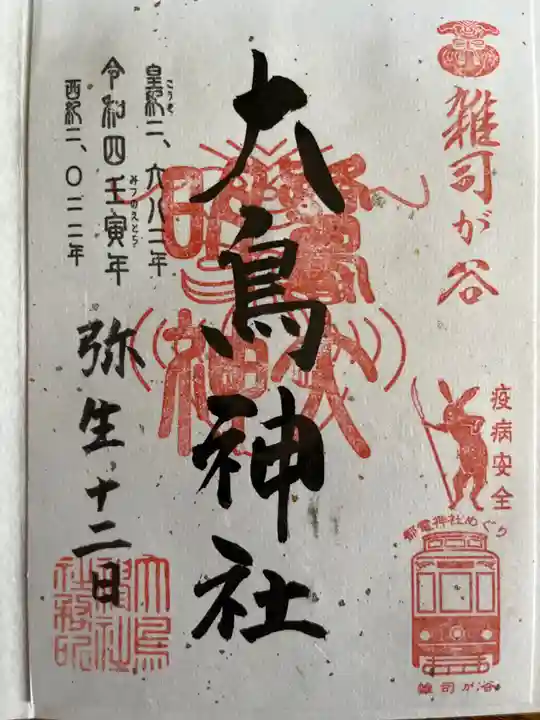 雑司が谷
疫病安全
都電神社めぐり
雑司が谷
大鳥神社
皇紀二、六八二年
こうき
令和四壬寅年
みづのえとら
西紀二、〇二二年
弥生十二日